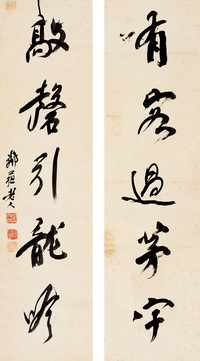 有客過茅宇
敲磬引龍吟
鄰蘇老人